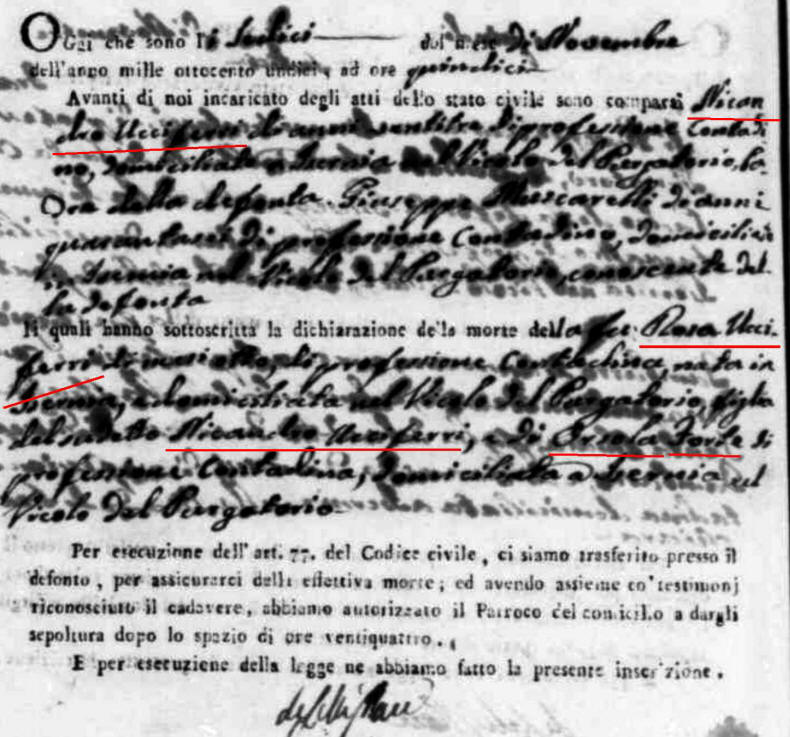 Oggi che sono li sedici del mese di Novembre
dell'anno mille ottocento undici, ad ore quindici
Avanti di noi incaricato degli atti dello stato civile sono comparsi Nican
dro Ucciferri di anni ventitre di professione Contadi
no, domiciliato a Isernia nel Vicolo del Purgatorio,
della defonta. Giuseppe Muscarelli di anni
quarantasei di professione Contadino, domiciliato
in Isernia nel Vicolo del Purgatorio, conoscente del
la defonta
li quali hanno sottoscritta la dichiarazione della morte della fu Rosa Ucci-
ferri di professione Contadina, nata in
Isernia, e domiciliata nel Vicolo del Purgatorio, figlia
del sudetto Nicandro Ucciferri, e di Orsola Forte di
professione Contadina, domiciliata a Isernia al
Vicolo del Purgatorio
Per esecuzione dell'art. 77. del Codice civile, ci siamo trasferito presso il
defonto, per assicurarci della effettiva morte; ed avendo assieme co'testimonj
riconosciuto il cadavere, abbiamo autorizzato il Parroco del comicilio a dargli
sepoltura dopo lo spazio di ore ventiquattro.
E per esecuzione della legge ne abbiamo fatto la presente inscrizione.